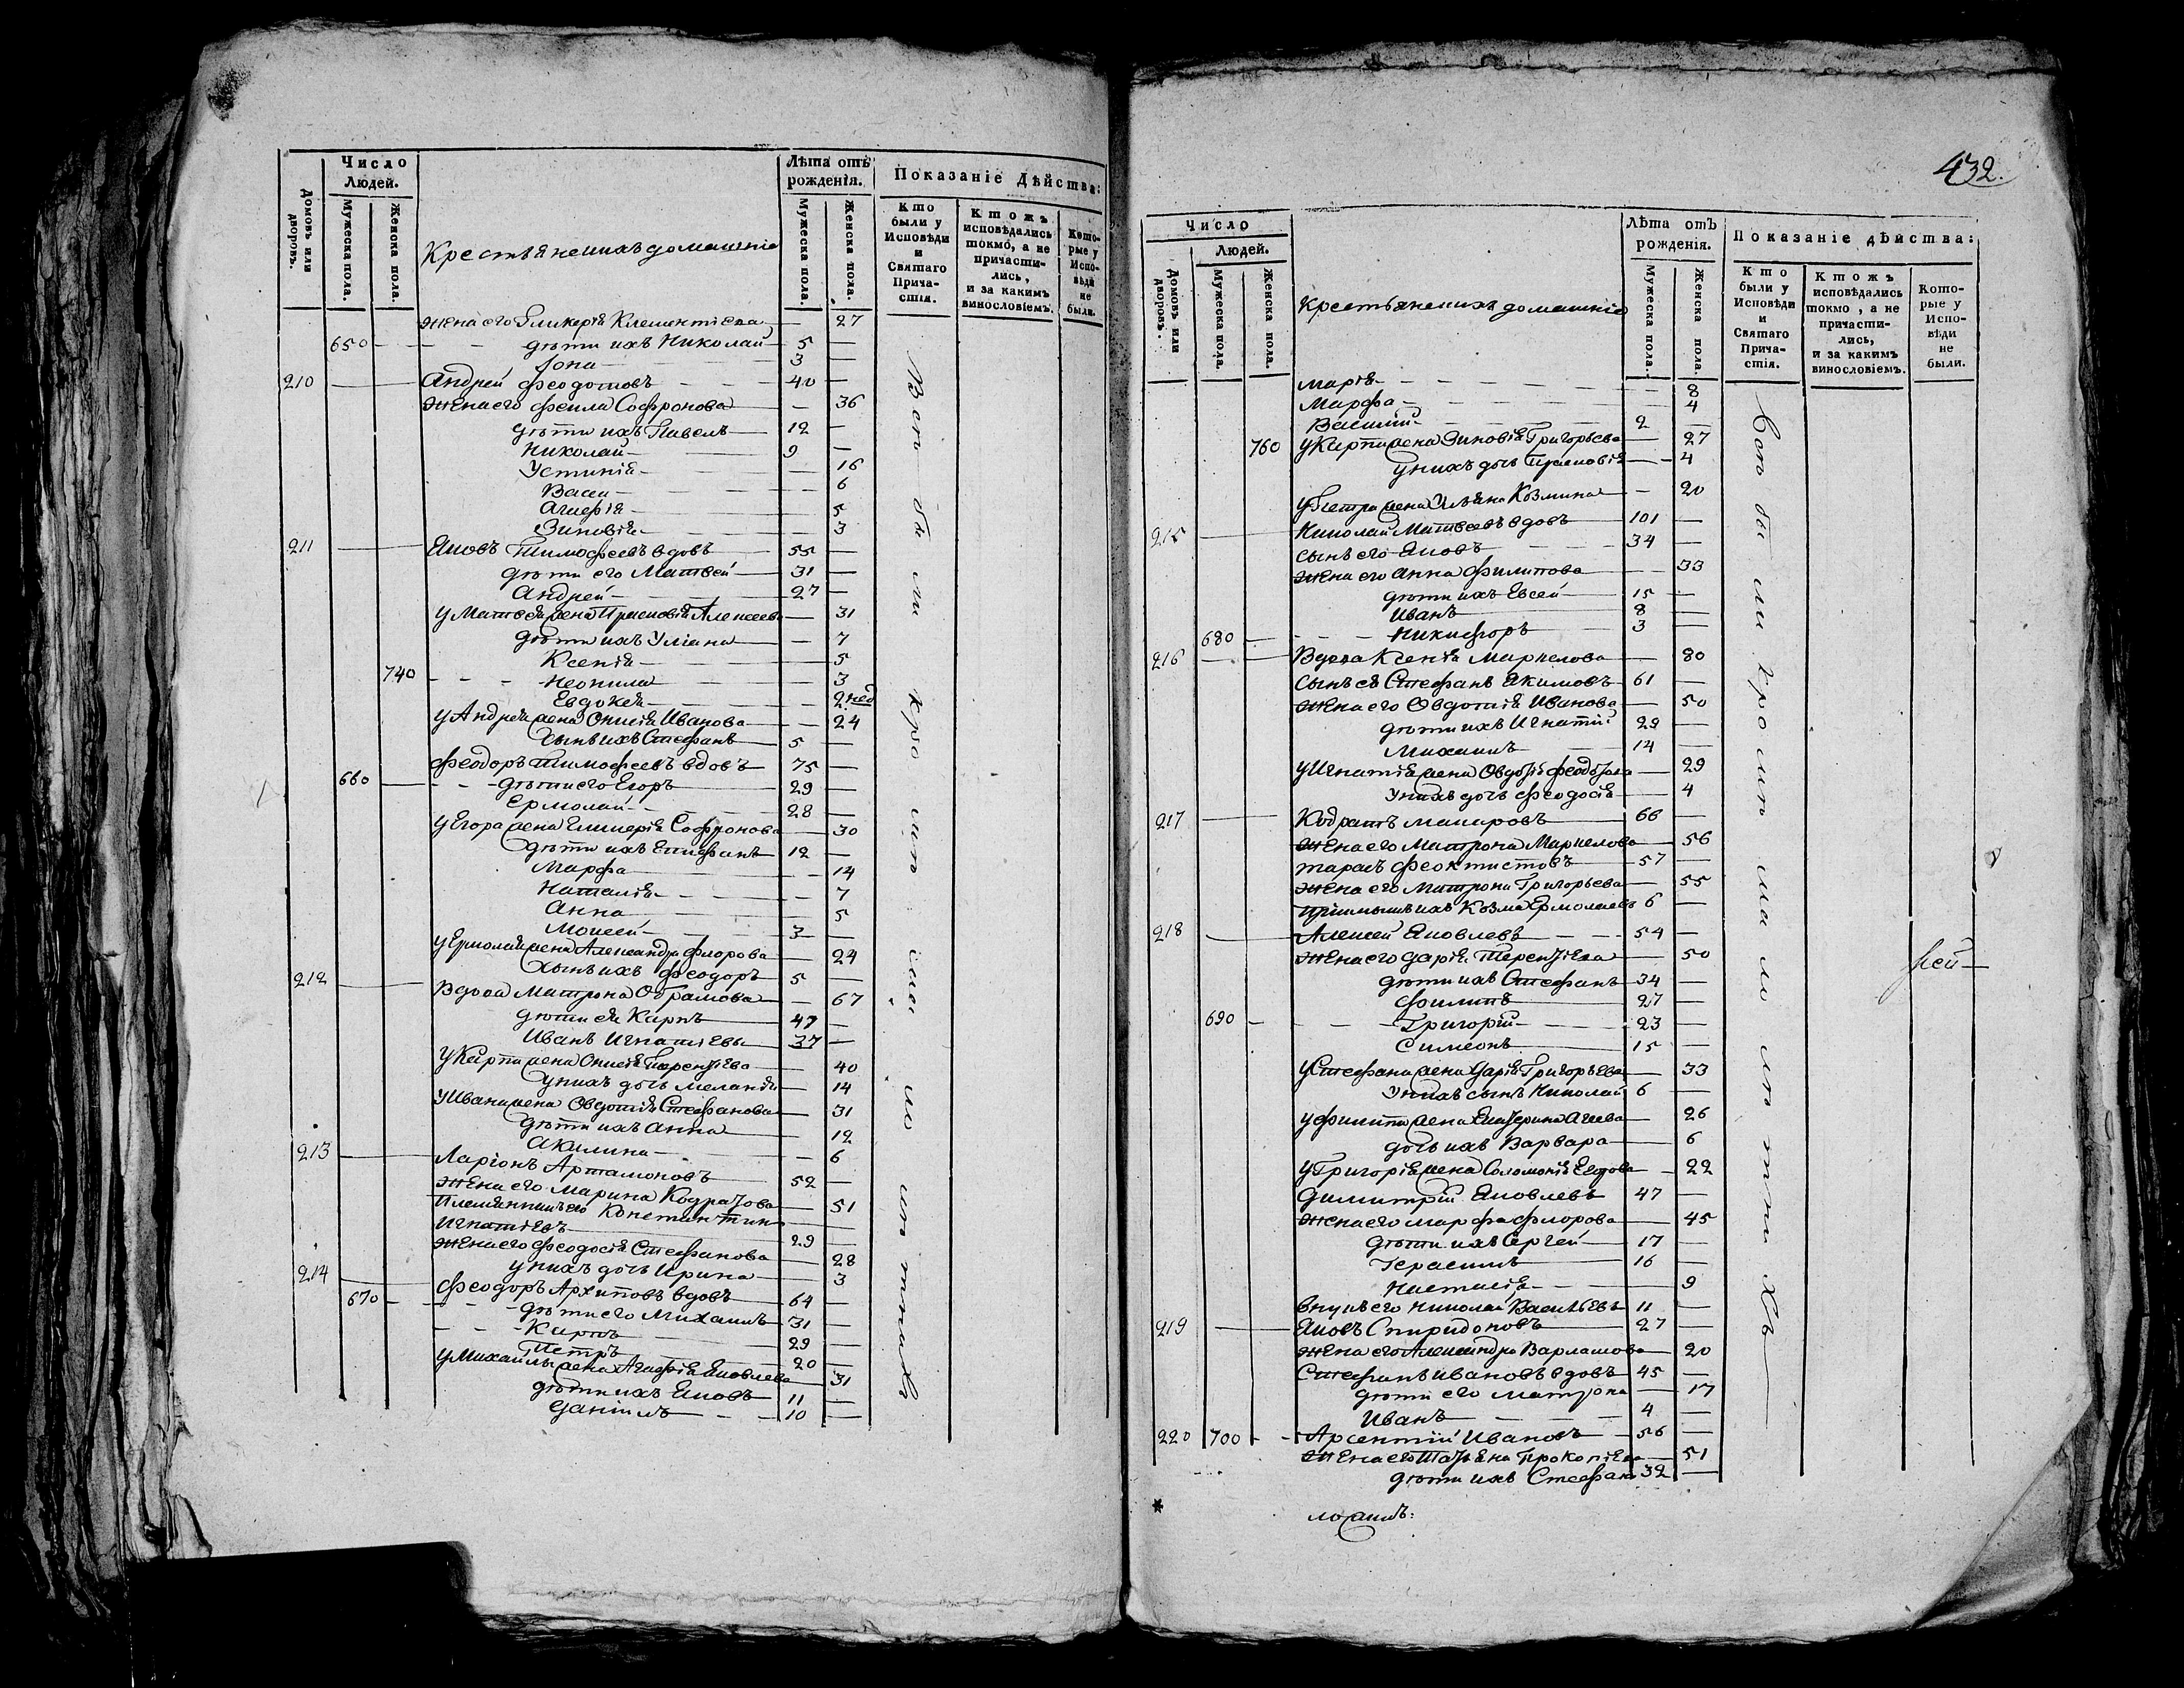 Число
Людей.
Домовъ или дворовъ.
Мужеска пола.
Женска пола.
Крестьяне и ихъ домашніе
Лѣта отъ рожденія.
Мужеска пола.
Женска пола.
Показаніе Дѣйства:
Кто были у Исповѣди и Святаго Причастія.
Ктожъ исповѣдались токмо, а не причастились, и за какимъ винословіемъ.
Которые у Исповѣди не были.
жена его Гликерія Клементіева — 27
650 дѣти ихъ Николай 5 —
Іона 3 —
210 Андрей Феодотовъ 40 —
жена его Фекла Софронова — 36
дѣти ихъ Павелъ 12 —
Николай 9 —
Устинія — 16
Васса — 6
Агафія — 5
Зиновія — 3
211 Яковъ Тимофеевъ вдовъ 55 —
дѣти его Матвей 31 —
Андрей 27 —
у Матвея жена Прасковія Алексеева — 31
дѣти ихъ Уліана — 7
Ксенія — 5
740 Неонила — 3
Евдокея — 2 нед
у Андрея жена Онисія Иванова — 24
сынъ ихъ Стефанъ 5 —
Феодоръ Тимофеевъ вдовъ 75 —
660 дѣти его Егоръ 29 —
Ермолай 28 —
у Егора жена Гликерія Софронова — 30
дѣти ихъ Епифанъ 12 —
Марфа — 14
Наталія — 7
Анна — 5
Моисей 3 —
у Ермолая жена Александра Флорова — 24
сынъ ихъ Феодоръ 5 —
212 Вдова Матрона Обрамова — 67
дѣти ея Карпъ 47 —
Иванъ Игнатіевы 37 —
у Карпа жена Онисія Терентіева — 40
у нихъ дочь Меланія — 14
у Ивана жена Овдотія Стефанова — 31
дѣти ихъ Анна — 12
Акилина — 6
213 Ларіонъ Артамоновъ 52 —
жена его Марина Кодратова — 51
племянникъ его Константинъ
Игнатіевъ 29 —
жена его Феодосія Стефанова — 28
у нихъ дочь Ирина — 3
214 Феодоръ Архиповъ вдовъ 64 —
670 дѣти его Михаилъ 31 —
Карпъ 29 —
Петръ 20 —
у Михаилы жена Агафія Яковлева — 31
дѣти ихъ Яковъ 11 —
Даніилъ 10 —
Вси были кромѣ
432.
Число
Людей.
Домовъ или дворовъ.
Мужеска пола.
Женска пола.
Крестьяне и ихъ домашніе
Лѣта отъ рожденія.
Мужеска пола.
Женска пола.
Показаніе дѣйства:
Кто были у Исповѣди и Святаго Причастія.
Ктожъ исповѣдались токмо, а не причастились, и за какимъ винословіемъ.
Которые у Исповѣди не были.
Марія — 8
Марфа — 4
Василий 2 —
760 у Карпа жена Зиновія Григорьева — 27
у нихъ дочь Прасковія — 4
у Петра жена Ульяна Козмина — 20
215 Николай Матвеевъ вдовъ 101 —
сынъ его Яковъ 34 —
жена его Анна Филипова — 33
дѣти ихъ Евсей 15 —
Иванъ 8 —
680 Никифоръ 3 —
216 Вдова Ксенія Маркелова — 80
сынъ ея Стефанъ Якимовъ 61 —
жена его Овдотія Иванова — 50
дѣти ихъ Игнатій 29 —
Михаилъ 14 —
у Игнатія жена Овдотія Феодотова — 29
у нихъ дочь Феодосія — 4
217 Кодратъ Макаровъ 66 —
жена его Матрона Маркелова — 56
Тарасъ Феоктистовъ 57 —
жена его Матрона Григорьева — 55
пріимышъ ихъ Козма Ермолаевъ 6 —
218 Алексей Яковлевъ 54 —
жена его Дарія Терентіева — 50
дѣти ихъ Стефанъ 34 —
Филипъ 27 —
690 Григорій 23 —
Симеонъ 15 —
у Стефана жена Дарія Григорьева — 33
у нихъ сынъ Николай 6 —
у Филипа жена Екатерина Агеева — 26
дочь ихъ Варвара — 6
у Григорія жена Соломонія Егорова — 22
Димитрій Яковлевъ 47 —
жена его Марфа Флорова — 45
дѣти ихъ Сергей 17 —
Герасимъ 16 —
Настасія — 9
внукъ его Николай Васильевъ 11 —
219 Яковъ Спиридоновъ 27 —
жена его Александра Варламова — 20
Стефанъ Ивановъ вдовъ 45 —
дѣти его Матрона — 17
Иванъ 4 —
220 700 Арсентій Ивановъ 56 —
жена его Татьяна Прокопіева — 51
дѣти ихъ Стефанъ 32 —
Вси были кромѣ малолѣтнихъ
рей